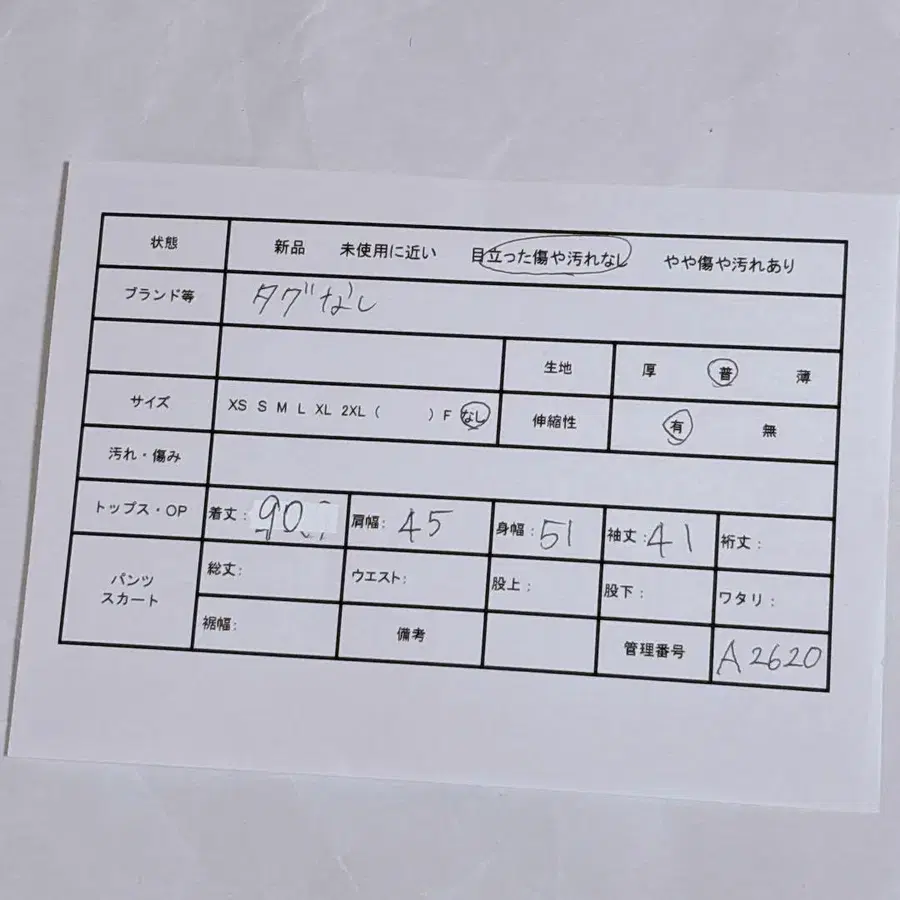 状態 新品 未使用に近い 目立った傷や汚れなし やや傷や汚れあり
ブランド等 タグなし
生地 厚 普 薄
サイズ XS S M L XL 2XL ( ) F なし 伸縮性 有 無
汚れ・傷み
トップス・OP 着丈: 90 肩幅: 45 身幅: 51 袖丈: 41 裄丈:
パンツ スカート 総丈: ウエスト: 股上: 股下: ワタリ:
裾幅: 備考 管理番号 A2620